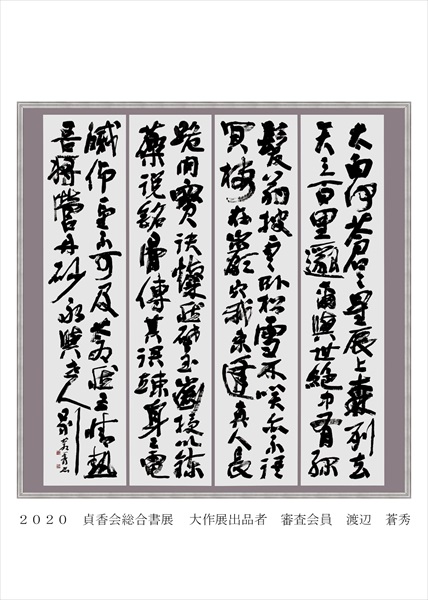 太白何蒼々星辰上森列去
天三百里邈爾與世絶中有緑
髪翁披雲臥松雪不咲亦不語
冥棲在巖穴我来逢真人長
跪問寶訣燦然啓玉歯授以錬
薬説銘骨傳其語竦身已電
滅仰望不可及蒼然五情熱
吾将營丹砂永與世人別
２０２０　貞香会総合書展　大作展出品者　審査会員　渡辺　蒼秀